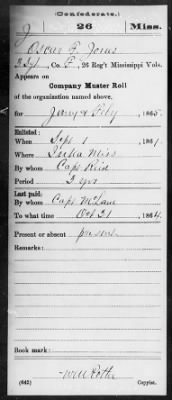 (Confederate.)
J 26 Miss.
Oscar F. Jones
2 Sgt, Co. F, 26 Reg't Mississippi Vols.
Appears on
Company Muster Roll
of the organization named above,
for Jany & Feby, 1865.
Enlisted:
When Sept 1, 1861.
Where Iuka Miss
By whom Capt Reid
Period 3 yrs
Last paid:
By whom Capt McLean
To what time Oct 31, 1864.
Present or absent present
Remarks:
Book mark:
(642) Copyist.